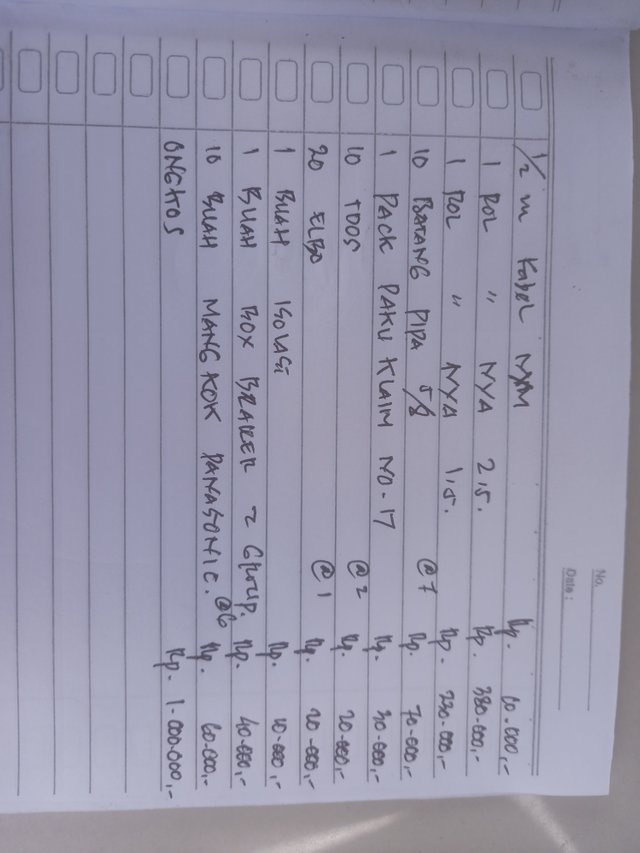 No.
Date :
1/2 m Kabel NYM Rp. 60.000,-
1 ROL " NYA 2,5. Rp. 380.000,-
1 ROL " NYA 1,5. Rp. 230.000,-
10 BATANG PIPA 5/8 @7 Rp. 70.000,-
1 PACK PAKU KLAIM NO-17 Rp. 30.000,-
10 TDOS @2 Rp. 20.000,-
20 ELBO @1 Rp. 20.000,-
1 BUAH ISOLASI Rp. 10.000,-
1 BUAH BOX BRAKER 2 GROUP. Rp. 40.000,-
10 BUAH MANGKOK PANASONIC. @6 Rp. 60.000,-
ONGKOS Rp. 1.000.000,-